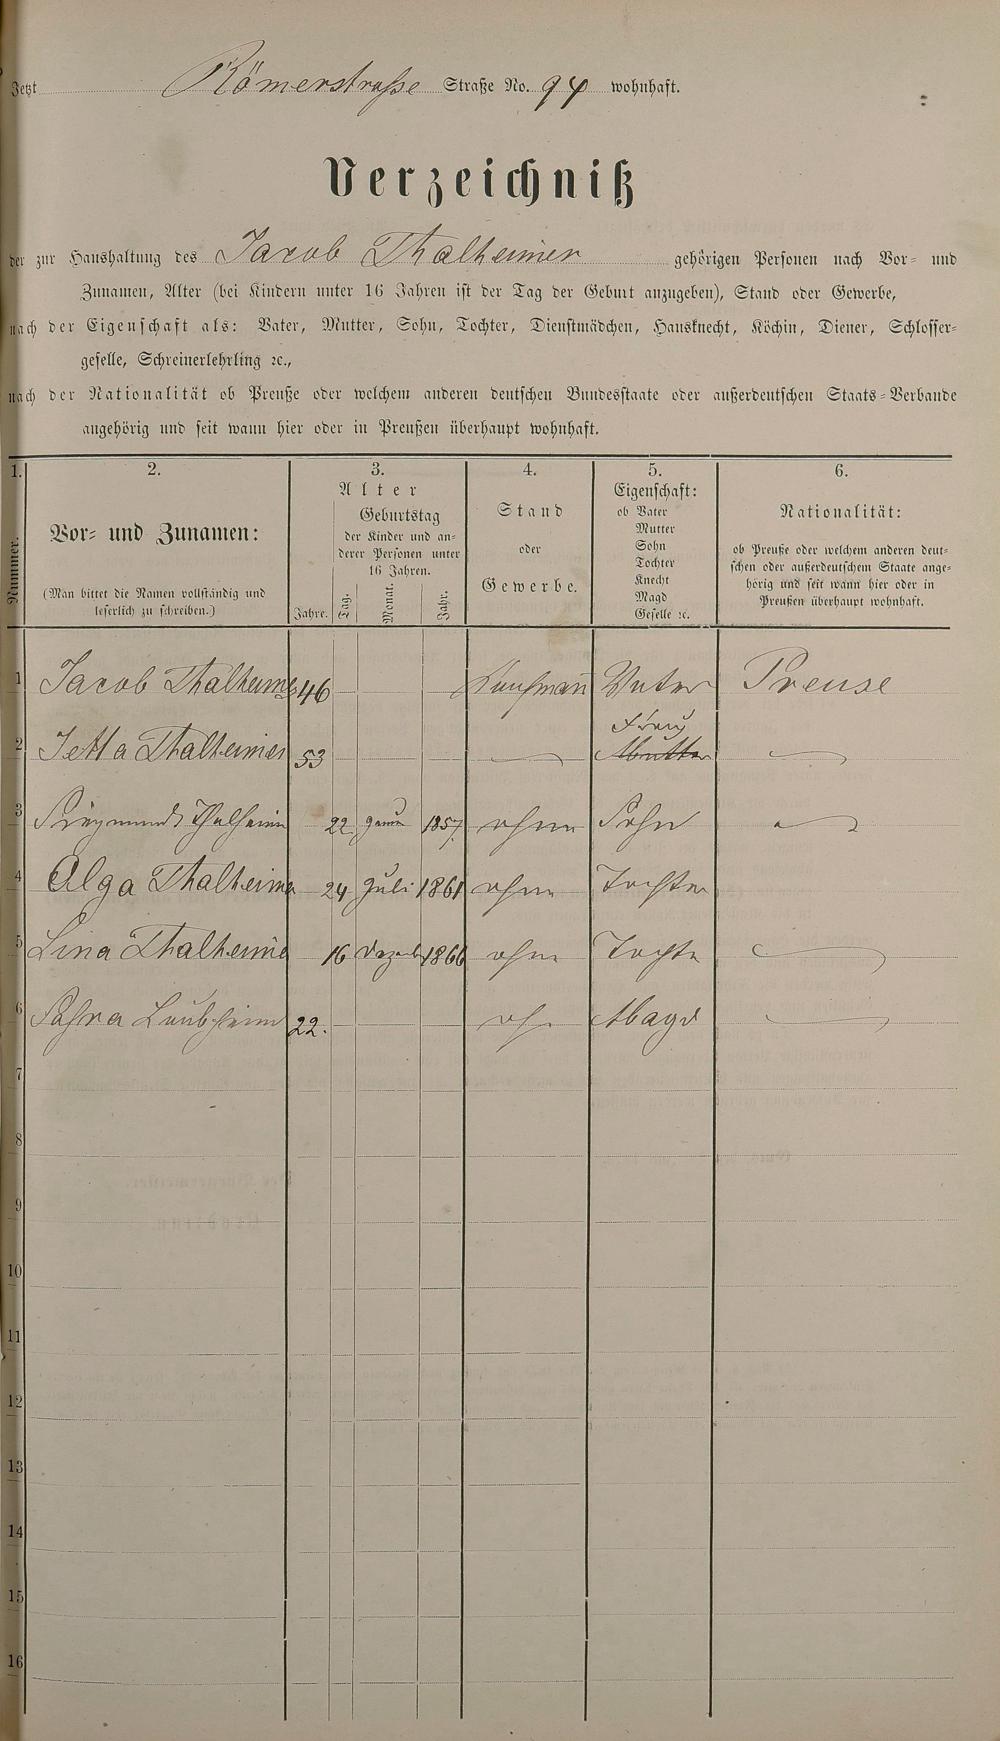 Jetzt Römerstraße Straße No. 94 wohnhaft.
Verzeichniß
der zur Haushaltung des Jacob Thalheimer gehörigen Personen nach Vor- und
Zunamen, Alter (bei Kindern unter 16 Jahren ist der Tag der Geburt anzugeben), Stand oder Gewerbe,
nach der Eigenschaft als: Vater, Mutter, Sohn, Tochter, Dienstmädchen, Hausknecht, Köchin, Diener, Schlosser-
geselle, Schreinerlehrling ꝛc.,
nach der Nationalität ob Preuße oder welchem anderen deutschen Bundesstaate oder außerdeutschen Staats-Verbande
angehörig und seit wann hier oder in Preußen überhaupt wohnhaft.
1. 2. 3. 4. 5. 6.
Nummer.
Vor- und Zunamen:
(Man bittet die Namen vollständig und
leserlich zu schreiben.)
Alter
Jahre.
Geburtstag
der Kinder und an-
derer Personen unter
16 Jahren.
Tag. Monat. Jahr.
Stand
oder
Gewerbe.
Eigenschaft:
ob Vater
Mutter
Sohn
Tochter
Knecht
Magd
Geselle ꝛc.
Nationalität:
ob Preuße oder welchem anderen deut-
schen oder außerdeutschem Staate ange-
hörig und seit wann hier oder in
Preußen überhaupt wohnhaft.
1 Jacob Thalheimer 46 Kaufmann Vater Preuse
Frau
2 Jetta Thalheimer 53 — Mutter —
3 Siegmund Thalheim 22 Januar 1857 ohne Sohn —
4 Olga Thalheimer 24 Juli 1861 ohne Tochter
5 Lina Thalheime 16 Dezemb 1866 ohne Tochter —
6 22. oh. Magd —
7
8
9
10
11
12
13
14
15
16